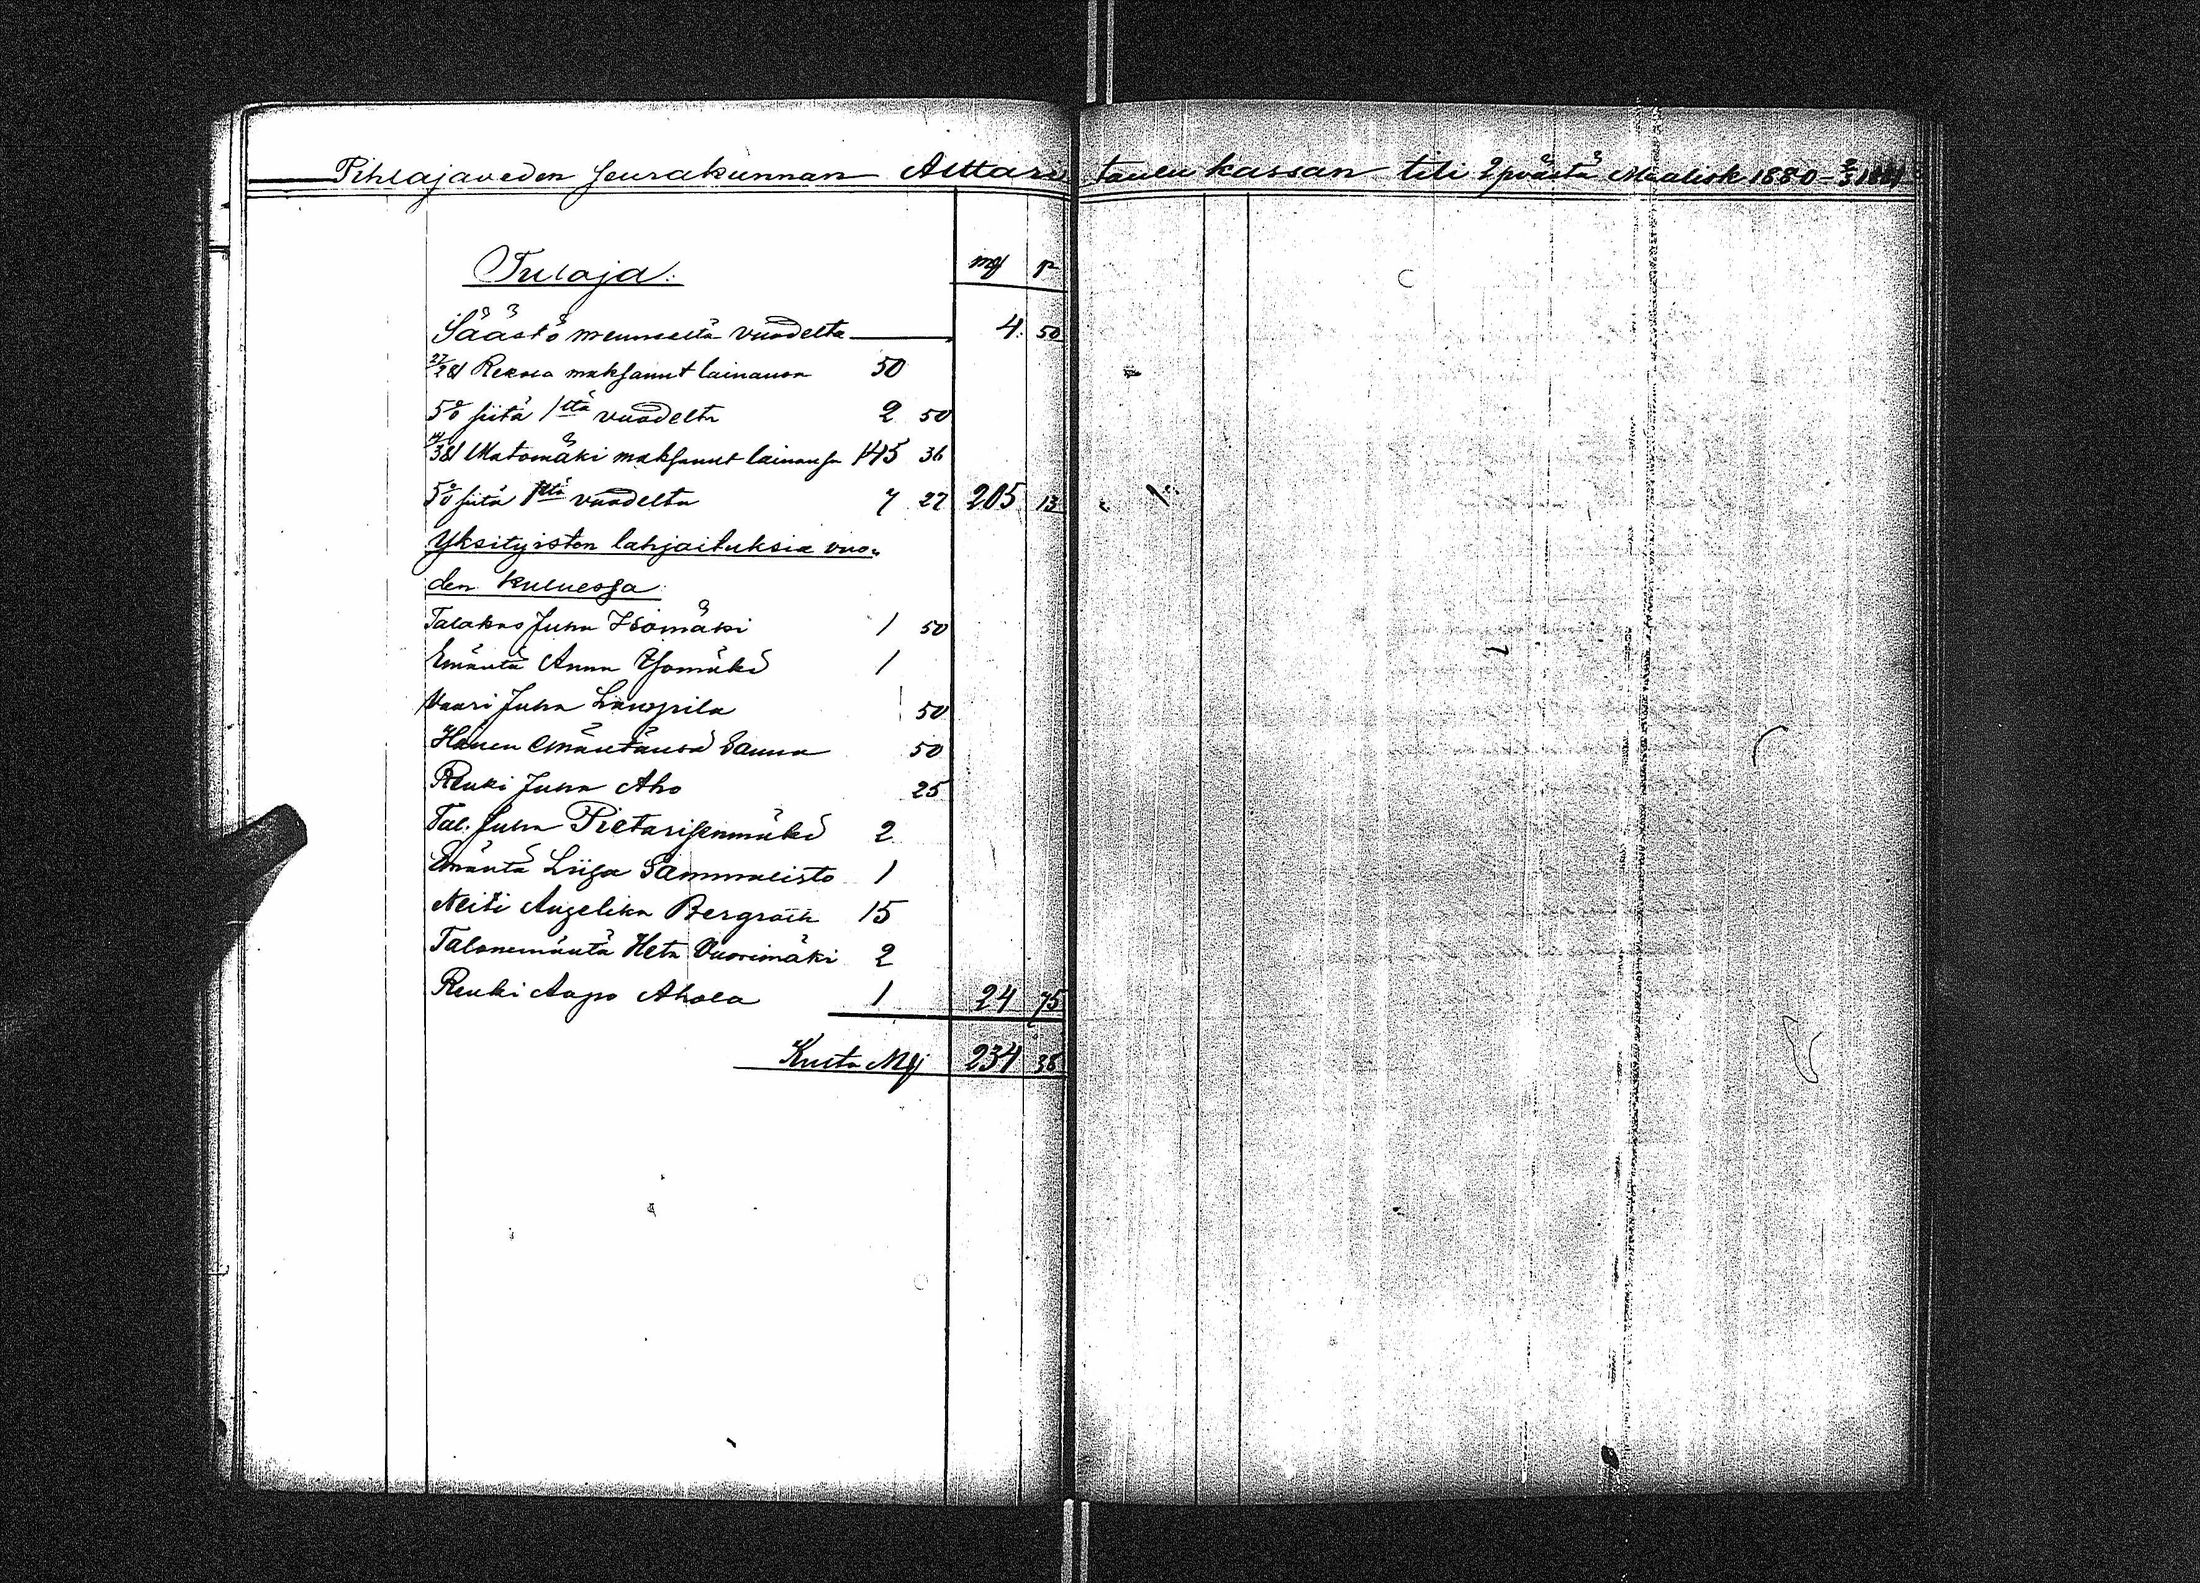 Pihlajaveden seurakunnan Alttari taulu kassan tili 2 p:västä Maalisk 1880 – 2/3 1881
Tuloja: mk p
Säästö menneeltä vuodelta 4. 50
27/2 81 Rekola maksanut lainansa 50
5% siitä 1ltä vuodelta 2 50
/3 81 Matomäki maksanut lainansa 145 36
5% siitä 1ltä vuodelta 7 27 205 13
Yksityisten lahjoituksia vuo-
den kuluessa
Talokas Juha Isomäki 1 50
Emäntä Anna Isomäki 1
Vaari Juha Lampila 50
Hänen emäntänsä Sanna 50
Renki Juha Aho 25
Tal. Juha Pietarisenmäki 2
Emäntä Liisa Sammalisto 1
Neiti Angelika Bergroth 15
Talonemäntä Heta Vuorimäki 2
Renki Aapo Ahola 1 24 75
Kulta Mk 234 38